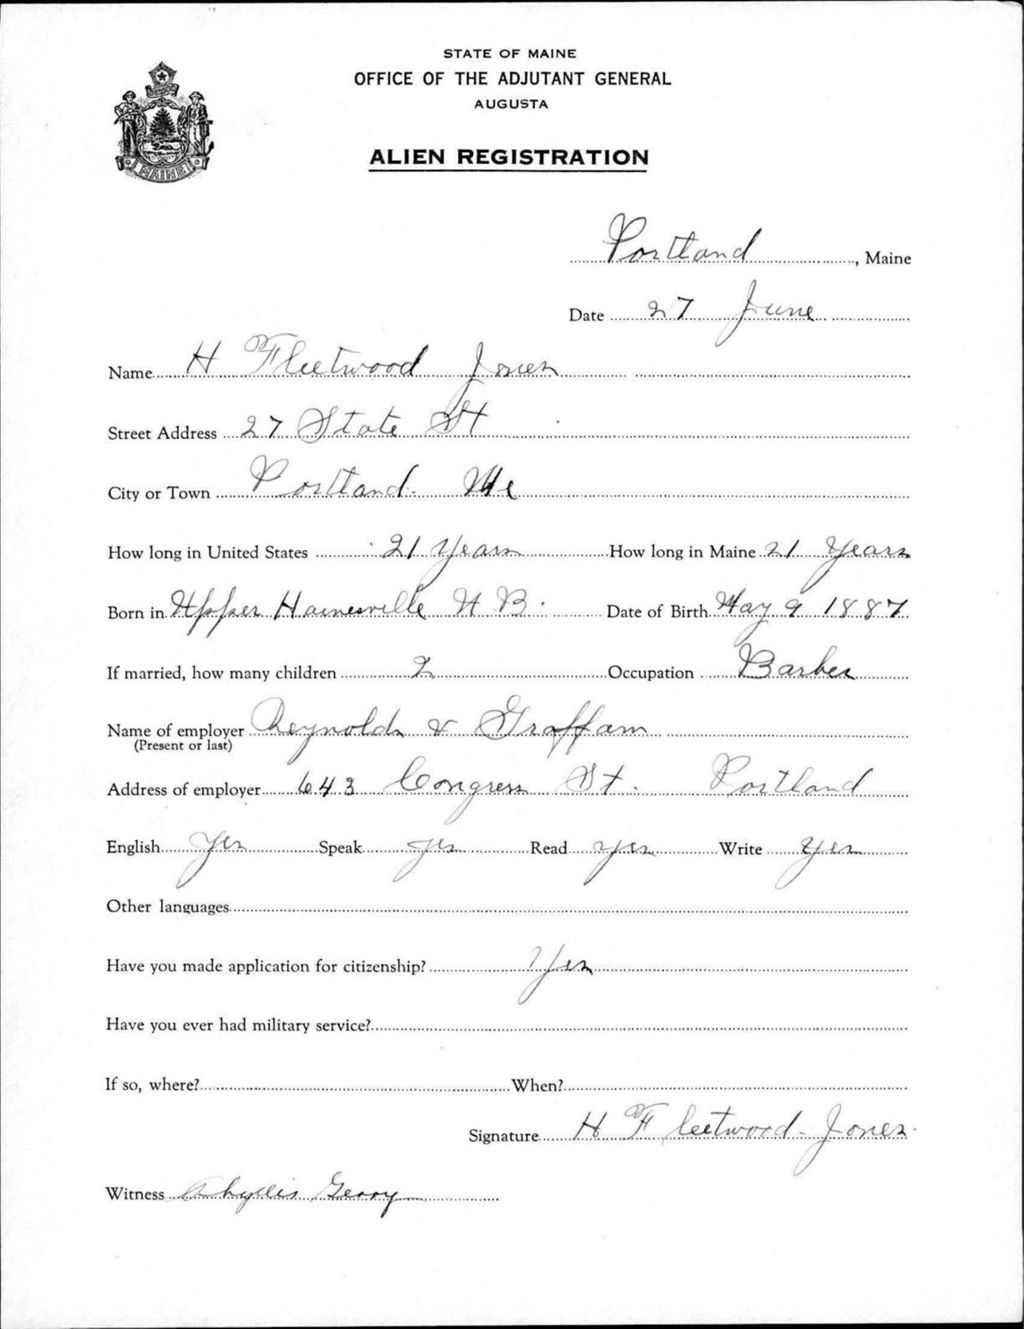 STATE OF MAINE
OFFICE OF THE ADJUTANT GENERAL
AUGUSTA
ALIEN REGISTRATION
MAINE
Portland, Maine
Date 27 June
Name H Fleetwood Jones
Street Address 27 State St
City or Town Portland. Me
How long in United States 21 Years How long in Maine 21 Years
Born in Upper Hainesville N B. Date of Birth May 9 1887
If married, how many children 2 Occupation Barber
Name of employer Reynolds & Graffam
(Present or last)
Address of employer 643 Congress St. Portland
English Yes Speak yes Read yes Write Yes
Other languages
Have you made application for citizenship? Yes
Have you ever had military service?
If so, where? When?
Signature H Fleetwood-Jones.
Witness Phyllis Gerry